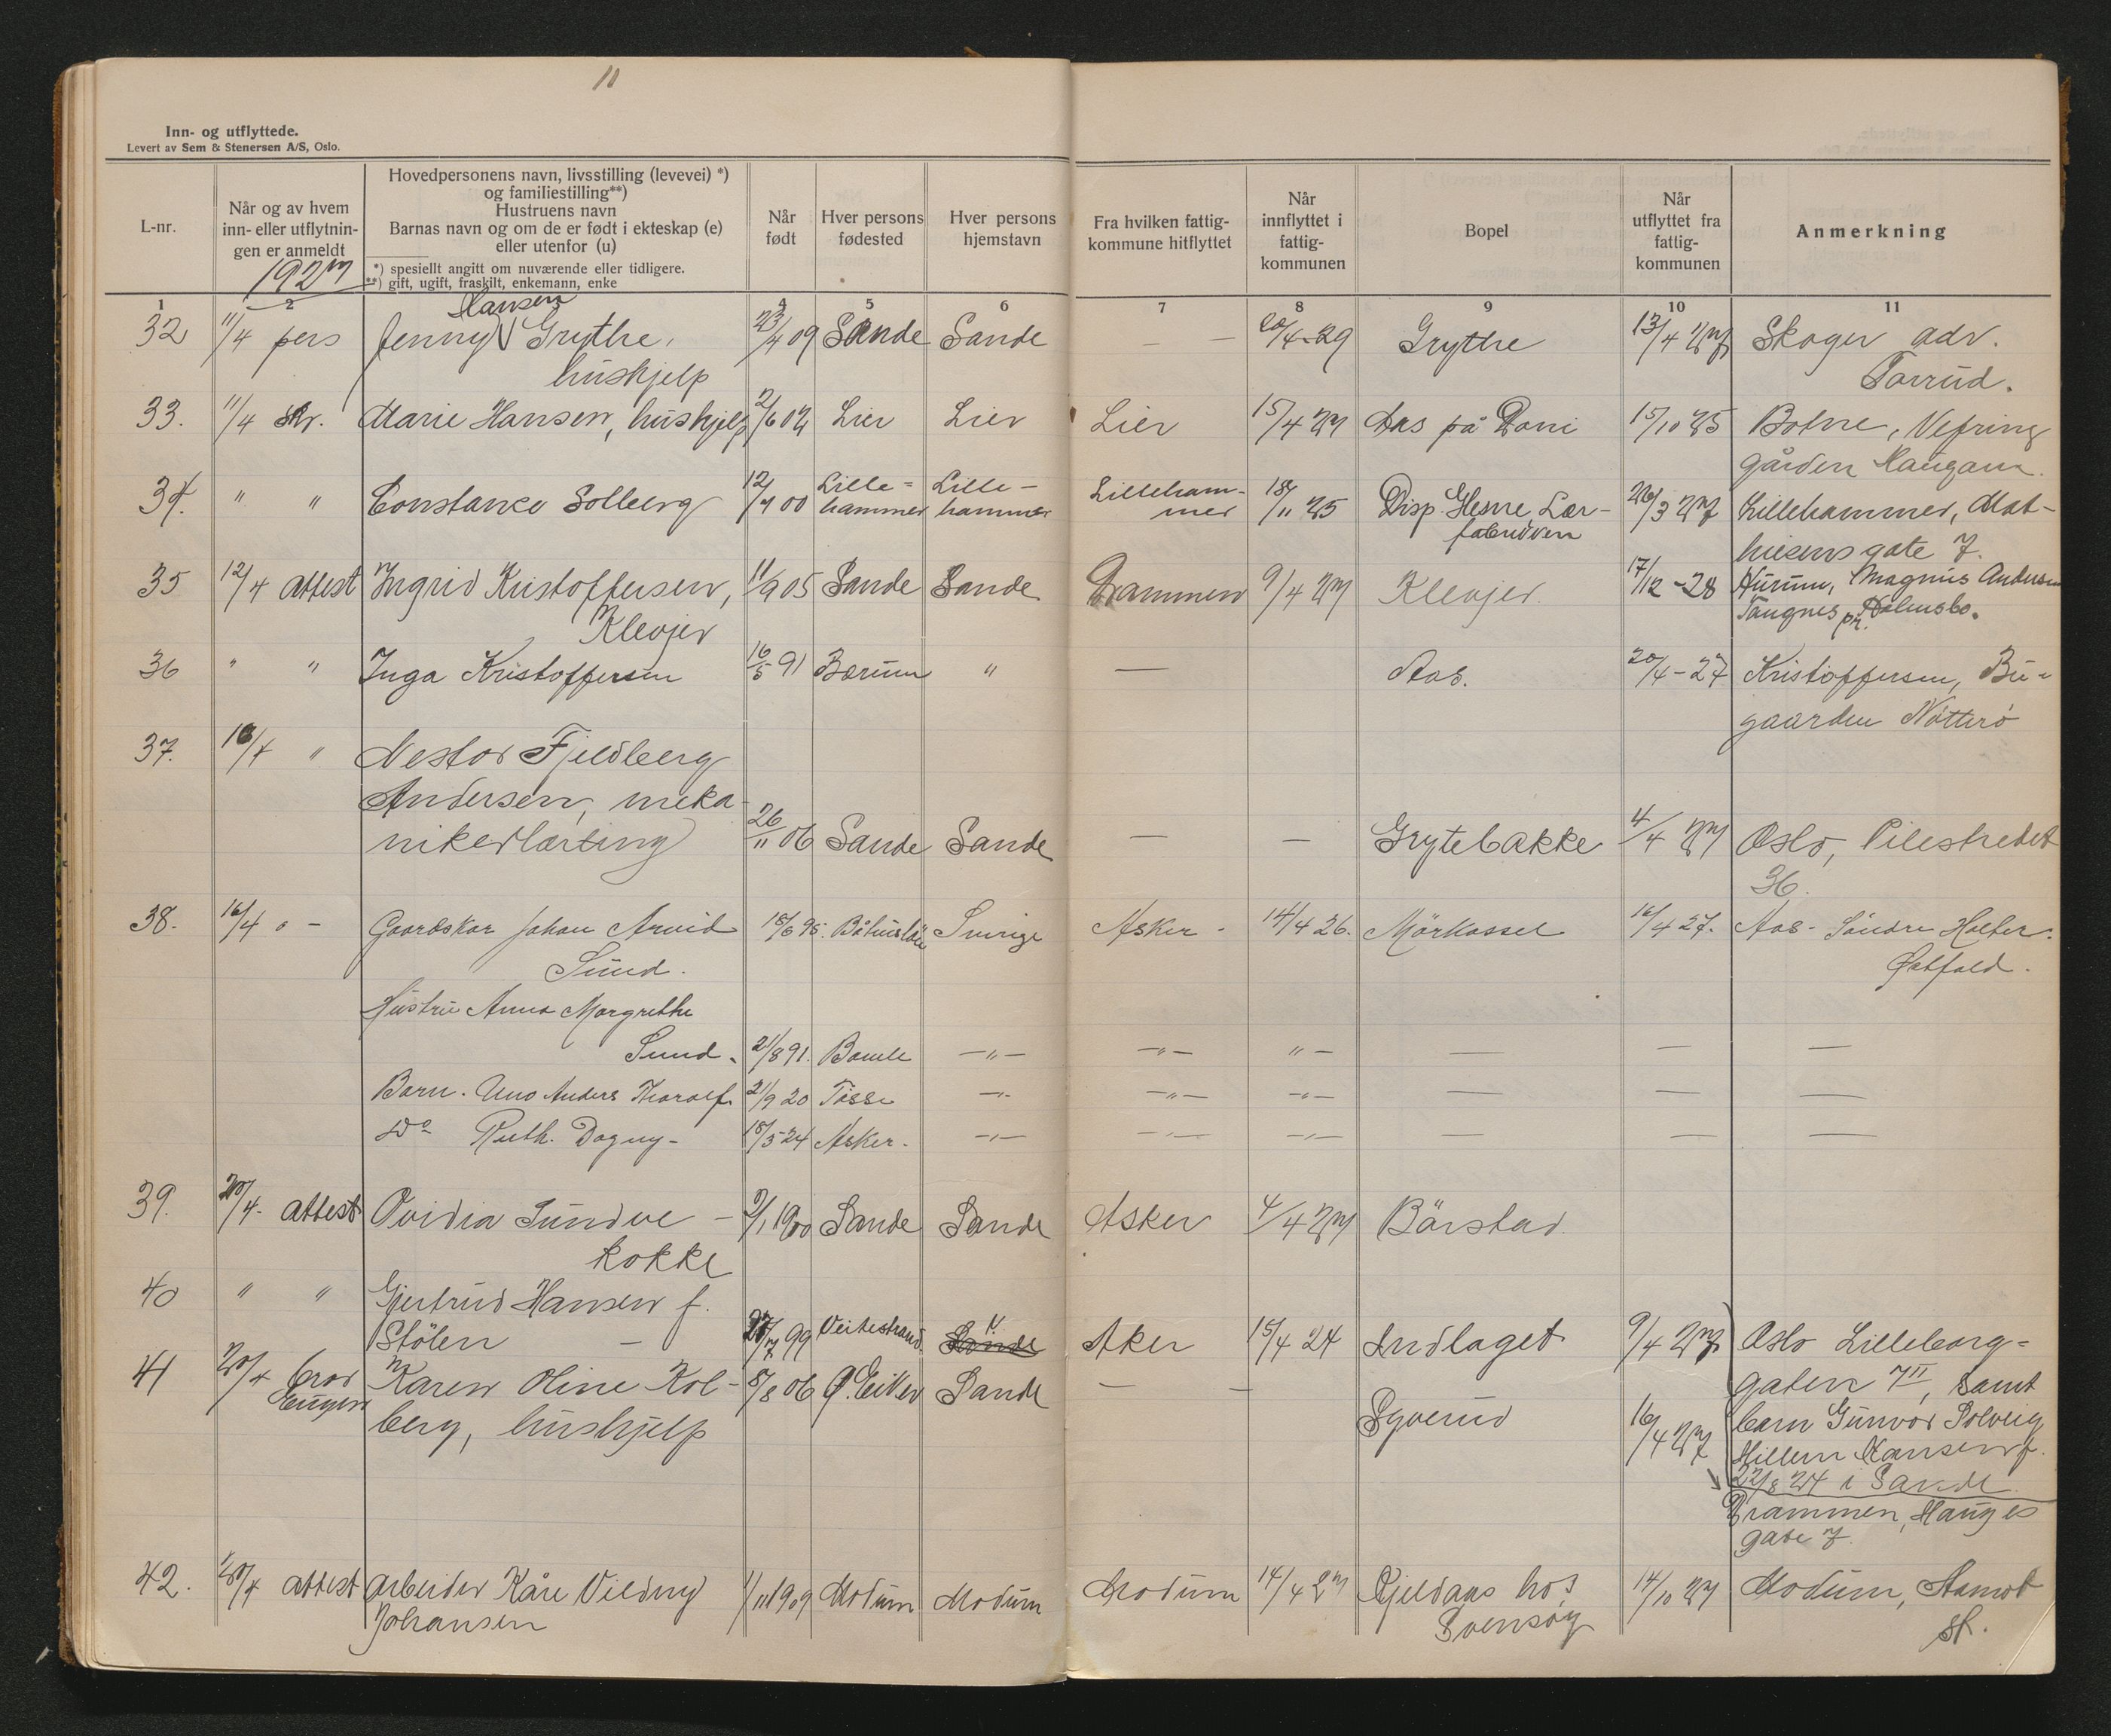 10
Inn- og utflyttede.
Levert av Sem & Stenersen A/S, Oslo.
L-nr.
Når og av hvem
inn- eller utflytnin-
gen er anmeldt
1927
Hovedpersonens navn, livsstilling (levevei) *)
og familiestilling**)
Hustruens navn
Barnas navn og om de er født i ekteskap (e)
eller utenfor (u)
*) spesiellt angitt om nuværende eller tidligere.
**) gift, ugift, fraskilt, enkemann, enke
Når
født
Hver persons
fødested
Hver persons
hjemstavn
Fra hvilken fattig-
kommune hitflyttet
Når
innflyttet i
fattig-
kommunen
Bopel
Når
utflyttet fra
fattig-
kommunen
Anmerkning
1 2 4 5 6 7 8 9 10 11
Hansen
32 11/4 pers Jenny V Grythe, 23/4 09 Sande Sande — — 20/4-29 Grythe 13/4 27 Skoger adr.
hushjelp Torrud.
33. 11/4 Marie Hansen, hushjelp 2/6 02 Lier Lier Lier 15/4 27 Aas på 15/10 25 Botne,
gården Haugan.
34. " " Constance Solberg 12/7 00 Lille- Lille- Lilleham- 18/11 25 Disp. Hesne Lær- 26/3 27 Lillehammer, Mat-
hammer hammer mer fabrikken
hiesens gate 7.
35 12/4 attest Ingrid Kristoffersen, 11/9 05 Sande Sande Drammen 9/4 27 Klevjer 17/12-28 Hurum, Magnus Andersen
Klevjer Tangnes pr. Holmsbo.
36 " " Inga Kristoffersen 16/5 91 Bærum " — Aas. 20/4-27 Kristoffersen, Bu-
gaarden Nøtterö
37. 16/4 " Nestor Fjeldberg
Andersen, meka-
nikerlærling 26/11 06 Sande Sande — — Grytebakke 4/4 27 Oslo, Pilestredet
36.
38. 16/4 " - Gaardskar Johan Arvid 18/6 95. Båhuslän Sverige Asker - 14/4 26. Mörkassel 16/4 27. Aas - Söndre Holter.
Sund. Østfold.
Hustru Anna Margrethe
Sund. 21/8 91. Bamle —"— —"— "— — — —
Barn. Uno Anders Thoralf 21/9 20 Tösse —"— —"— —"— — — —
Do Ruth. Dagny - 15/5-24 Asker. —"— —"— —"— — — —
39. 20/4. attest Ovidia Sundve — 9/1 1900 Sande Sande Asker 4/4 27 Bärstad
kokke
40 " " Gjertrud Hansen f.
Stölen — 27/7 99 Veitestrand " Sande Aker 15/4 24 Indlaget 9/4 27 Oslo Lilleborg-
gaten 7 II, samt
41 20/4 bror Karen Oline Kol- 8/8 06 Ø. Eiker Sande — — Syverud 16/4 27
Eugen berg, hushjelp
barn Gunvor Solveig
Hillem Hansen f.
22/8 24 i Sande
Drammen, Hauges
gate 7
42. 20/4 attest Arbeider Kåre Vildny 1/11 1909 Modum Modum Modum 14/4 27 Kjeldaas hos 14/10 27 Modum, Aamot
Johansen Svensøy st.